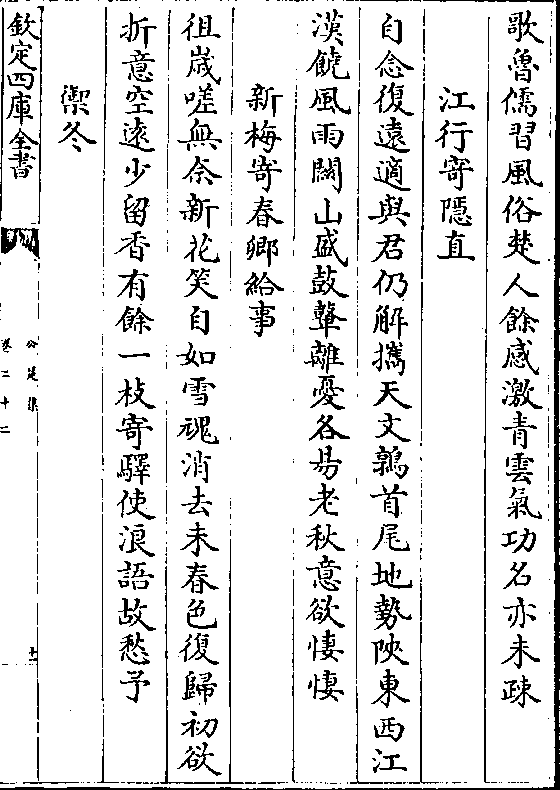 歌魯儒習風俗楚人餘感激青雲氣功名亦未疎
江行寄隱直
自念復遠適與君仍解攜天文鶉首尾地勢陜東西江
漢饒風雨關山盛鼓鼙離憂各易老秋意欲悽悽
新梅寄春卿給事
徂歲嗟無奈新花笑自如雪魂消去未春色復歸初欲
折意空遠少留香有餘一枝寄驛使浪語故愁予
禦冬
欽定四庫全書
公是集
卷二十二
十一